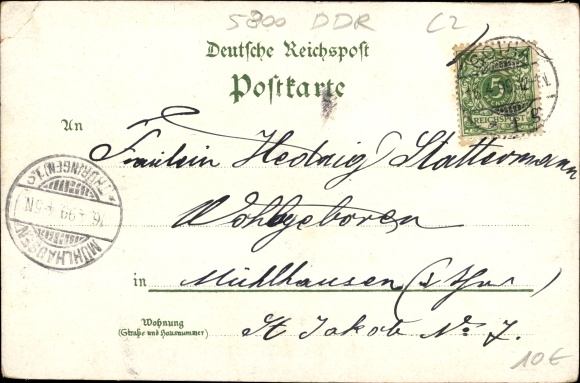 5800 DDR C2
Deutsche Reichspost
Postkarte
5
REICHSPOST
An
Fräulein Hedwig Stattermann
Wohlgeboren
MÜHLHAUSEN
(THÜRINGEN)
in Mühlhausen (i Thür)
Wohnung
(Straße und Hausnummer)
St Jakob No 7.
10€